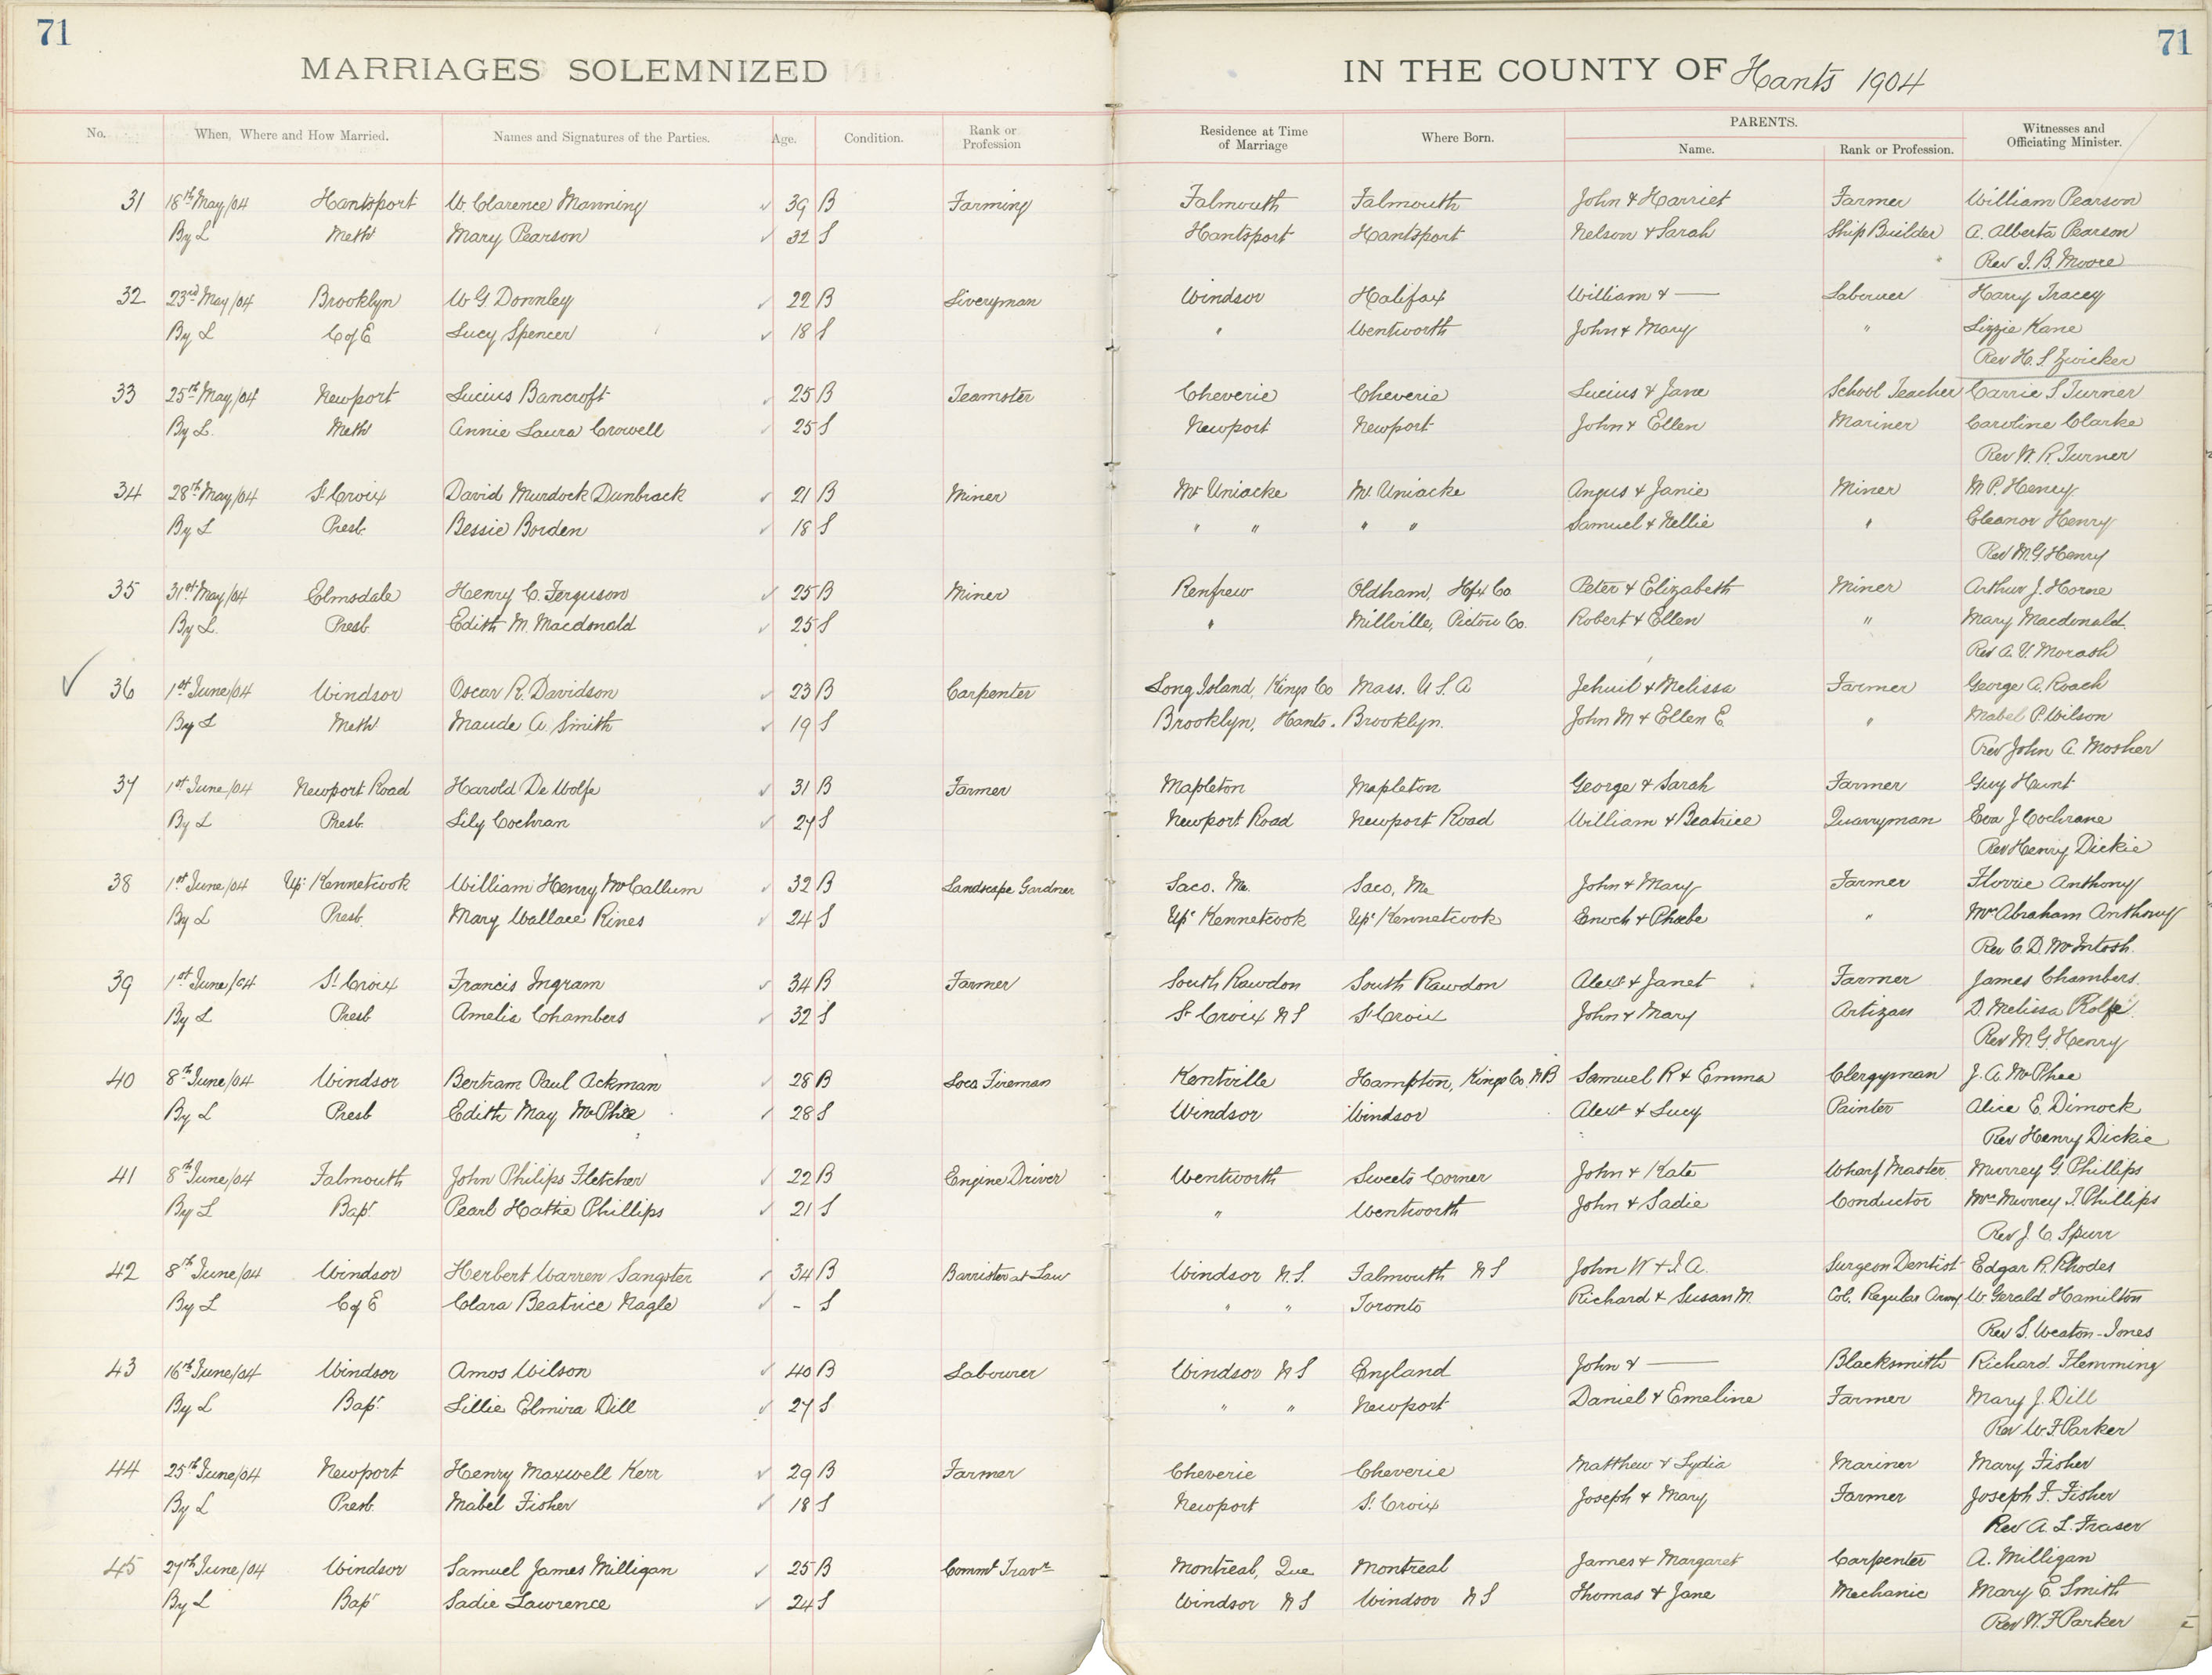 71
71
MARRIAGES SOLEMNIZED IN THE COUNTY OF Hants 1904
No. When, Where and How Married. Names and Signatures of the Parties. Age. Condition. Rank or Profession Residence at Time of Marriage Where Born. PARENTS. Name. Rank or Profession. Witnesses and Officiating Minister.
31 18th May/04 Hantsport W. Clarence Manning 39 B Farming Falmouth Falmouth John & Harriet Farmer William Pearson
By L Meth Mary Pearson 32 S Hantsport Hantsport Nelson & Sarah Ship Builder A. Alberta Pearson
Rev J. B. Moore
32 23rd May/04 Brooklyn W G Donnley 22 B Liveryman Windsor Halifax William & — Labourer Harry Tracey
By L C of E Lucy Spencer 18 S " Wentworth John & Mary " Lizzie Kane
Rev H. S. Zwicker
33 25th May/04 Newport Lucius Bancroft 25 B Teamster Cheverie Cheverie Lucius & Jane School Teacher Carrie S Turner
By L. Meth Annie Laura Crowell 25 S Newport Newport John & Ellen Mariner Caroline Clarke
Rev W. R. Turner
34 28th May/04 St Croix David Murdock Dunbrack 21 B Miner Mt Uniacke Mt Uniacke Angus & Janie Miner M P. Henry
By L Presb. Bessie Borden 18 S " " " " Samuel & Nellie " Eleanor Henry
Rev M. G Henry
35 31st May/04 Elmsdale Henry C. Ferguson 25 B Miner Renfrew Oldham, Hfx Co Peter & Elizabeth Miner Arthur J. Horne
By L. Presb Edith M. Macdonald 25 S " Millville, Pictou Co. Robert & Ellen " Mary Macdonald
Rev A. V. Morash
36 1st June/04 Windsor Oscar R. Davidson 23 B Carpenter Long Island, Kings Co Mass. U S. A Jehuil & Melissa Farmer George A. Roach
By L Meth Maude A. Smith 19 S Brooklyn, Hants. Brooklyn. John M & Ellen E. " Mabel P. Wilson
Rev John A. Mosher
37 1st June/04 Newport Road Harold De Wolfe 31 B Farmer Mapleton Mapleton George & Sarah Farmer Guy Hunt
By L Presb. Lily Cochran 27 S Newport Road Newport Road William & Beatrice Quarryman Eva J Cochrane
Rev Henry Dickie
38 1st June/04 Upr Kennetcook William Henry McCallum 32 B Landscape Gardner Saco. Me. Saco, Me John & Mary Farmer Florrie Anthony
By L Presb. Mary Wallace Rines 24 S Upr Kennetcook Upr Kennetcook Enoch & Phoebe " Mrs Abraham Anthony
Rev C. D. McIntosh.
39 1st June/04 St Croix Francis Ingram 34 B Farmer South Rawdon South Rawdon Alexr & Janet Farmer James Chambers.
By L Presb Amelia Chambers 32 S St Croix N S St Croix John & Mary Artizan D. Melissa Rolfe.
Rev M. G. Henry
40 8th June/04 Windsor Bertram Paul Ackman 28 B Loco Fireman Kentville Hampton, Kings Co. N B Samuel R & Emma Clergyman J. A. McPhee
By L Presb Edith May McPhee 28 S Windsor Windsor Alexr & Lucy Painter Alice E. Dimock
Rev Henry Dickie
41 8th June/04 Falmouth John Philips Fletcher 22 B Engine Driver Wentworth Sweets Corner John & Kate Wharf Master Murrey G Phillips
By L Bapt. Pearl Hattie Phillips 21 S " Wentworth John & Sadie Conductor Mrs Murrey T. Phillips
Rev J. C. Spurr
42 8th June/04 Windsor Herbert Warren Sangster 34 B Barrister at Law Windsor N. S. Falmouth N S John W & I. A. Surgeon Dentist Edgar R. Rhodes
By L C of E Clara Beatrice Nagle - S " " Toronto Richard & Susan M. Col. Regular Army W. Gerald Hamilton
Rev S. Weston-Jones
43 16th June/04 Windsor Amos Wilson 40 B Labourer Windsor N S England John & — Blacksmith Richard Flemming
By L Bapt. Lillie Elmira Dill 27 S " " Newport Daniel & Emeline Farmer Mary J. Dill
Rev W. F Parker
44 25th June/04 Newport Henry Maxwell Kerr 29 B Farmer Cheverie Cheverie Matthew & Lydia Mariner Mary Fisher
By L Presb. Mabel Fisher 18 S Newport St Croix Joseph & Mary Farmer Joseph F. Fisher
Rev A. L. Fraser
45 27th June/04 Windsor Samuel James Milligan 25 B Comml Travr Montreal, Que Montreal James & Margaret Carpenter A. Milligan
By L Bapt Sadie Lawrence 24 S Windsor N S Windsor N S Thomas & Jane Mechanic Mary E. Smith
Rev W. F Parker